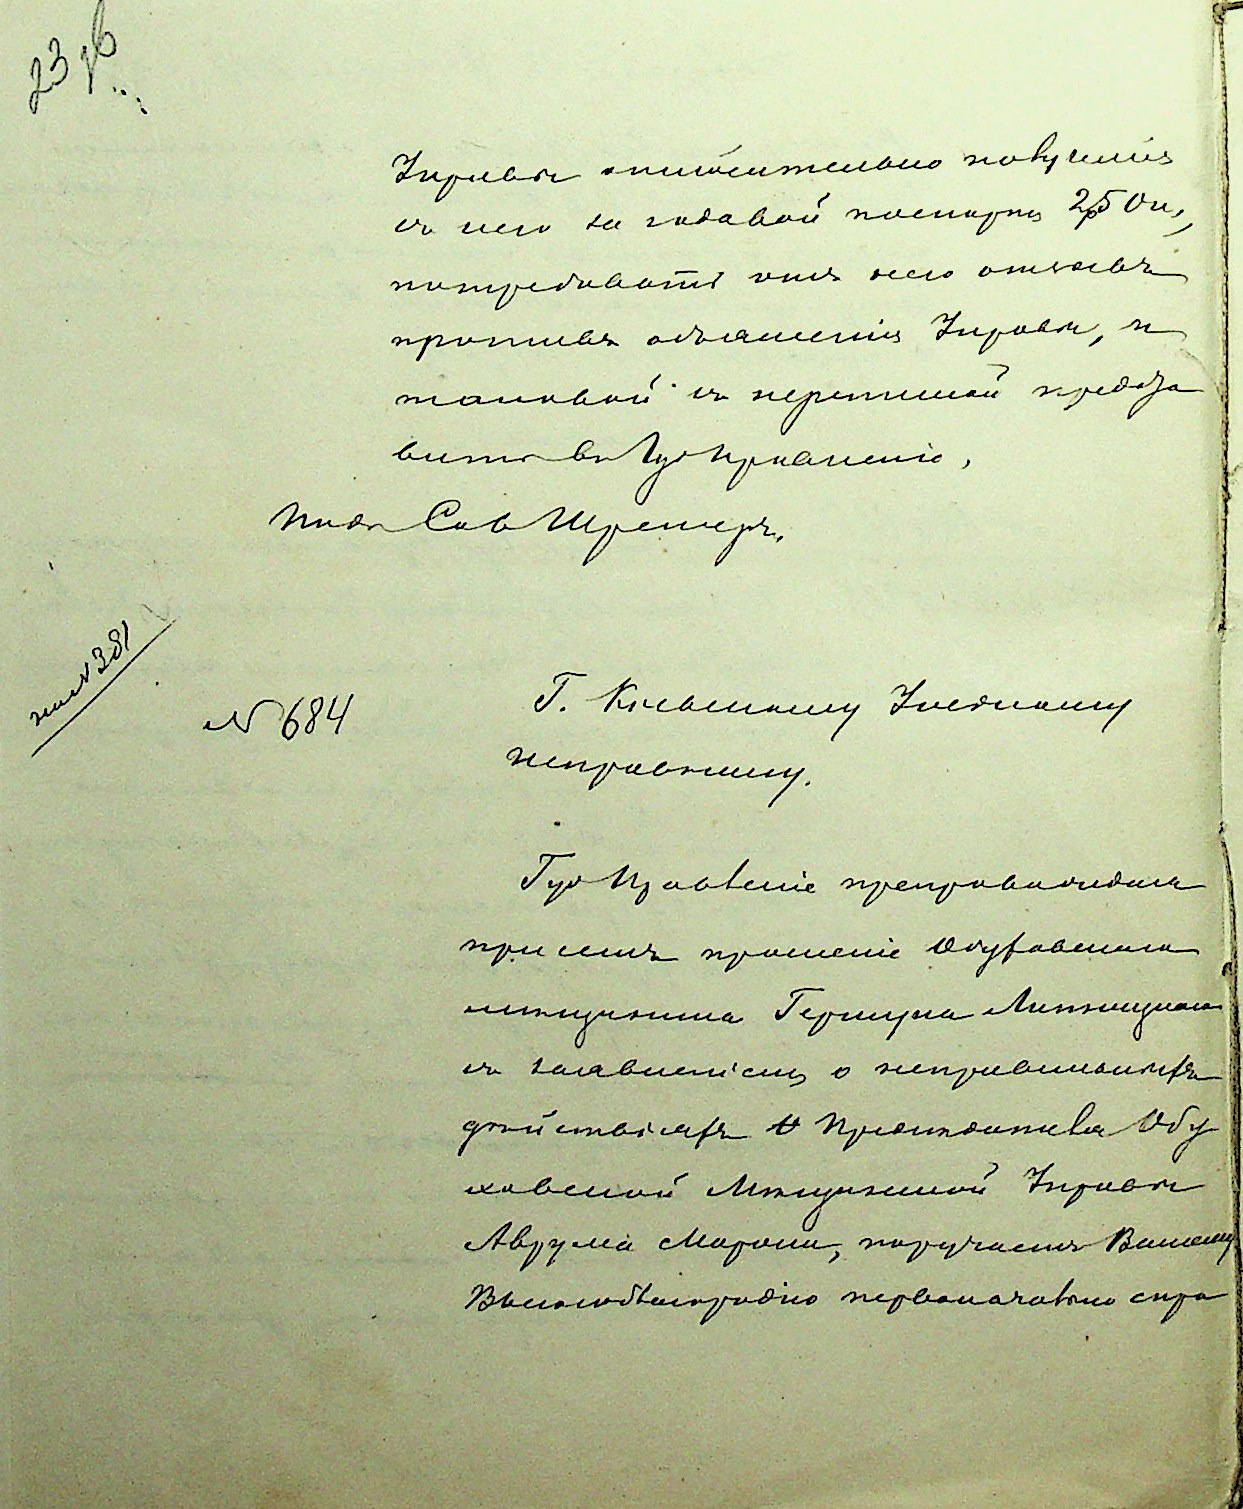 Управы относительно полученія
съ него за годовой паспортъ 2р 50 к,
потребовать отъ него отзывъ
противъ объясненія Управы, и
таковой съ перепиской предста
вить въ Губ Правленіе,
Подп Сов Шрейтеръ.
№ 381
№ 684
Г. Кіевскому Уѣздному
Исправнику.
Губ Правленіе препровождая
при семъ прошеніе Обуховскаго
мѣщанина Гершуна
съ заявленіемъ о неправильныхъ
дѣйствіяхъ Предсѣдателя Обу
ховской Мѣщанской Управы
Аврума поручаетъ Вашему
Высокоблагородію первоначально спра